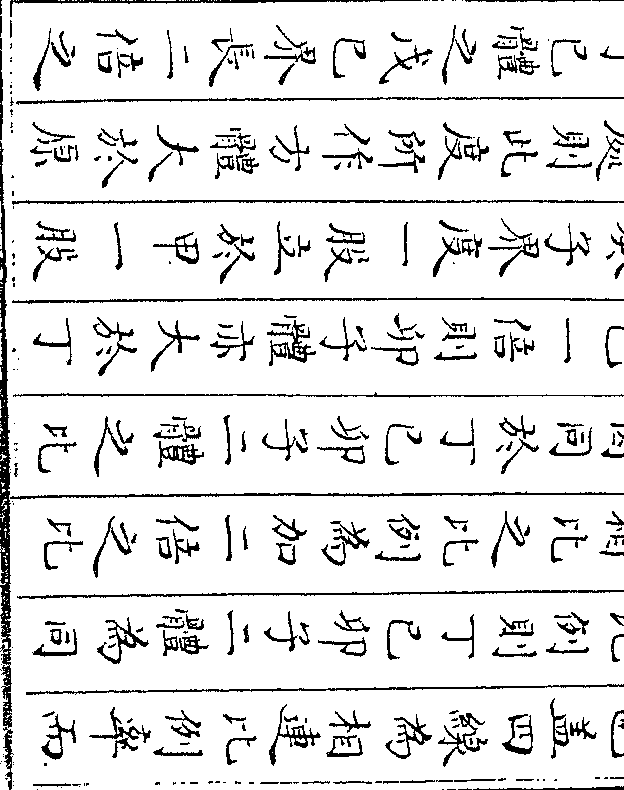 蓋四線為相連比例率而
比例則丁己卯子二體為同
相比之比例為加二倍之比
同於丁己卯子二體之比
己一倍則卯子體亦大於丁
子界度一股立於甲一股
則此度所作方體大於原
丁己體之戊己界長二倍之